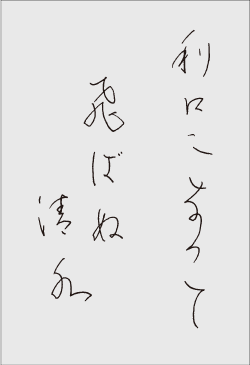 利口になって
飛ばぬ
清水